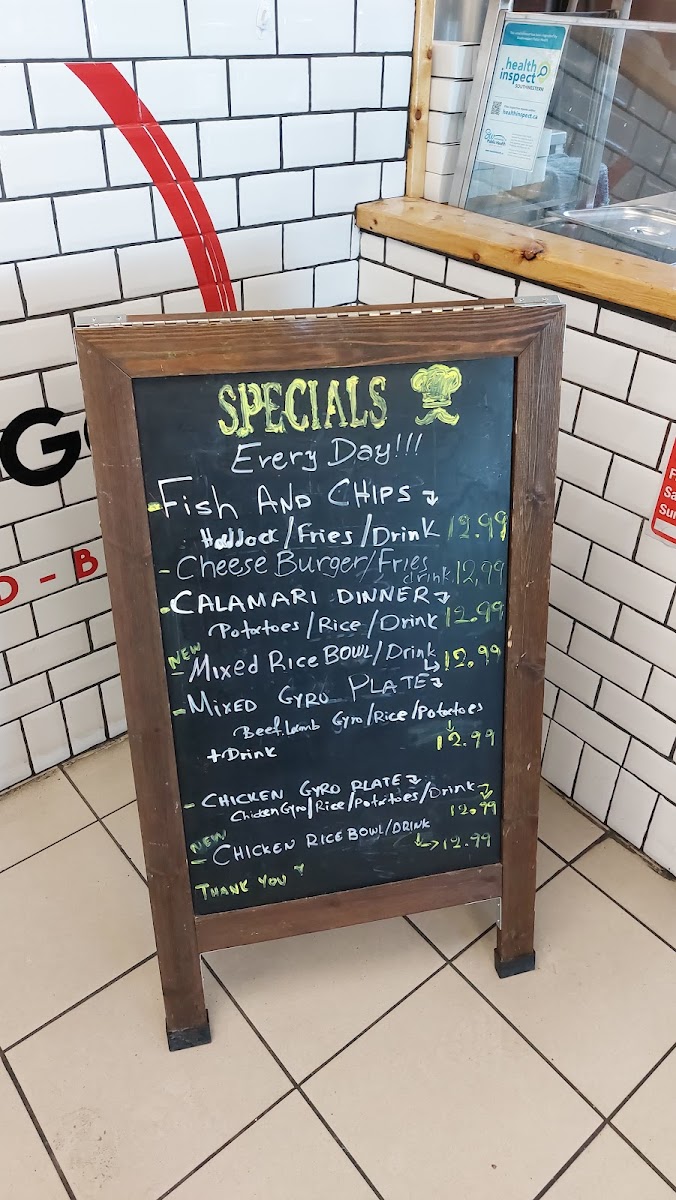 health
inspect
SOUTHWESTERN
healthinspect.ca
Public Health
G
D - B
SPECIALS
Every Day!!!
- Fish AND CHIPS
Haddock/Fries/Drink 12.99
- Cheese Burger/Fries
drink 12,99
- CALAMARI DINNER
Potatoes/Rice/Drink 12.99
NEW
- Mixed Rice BOWL/Drink
12.99
- MIXED GYRO PLATE
Beef.Lamb Gyro/Rice/Potatoes
+Drink 12.99
- CHICKEN GYRO PLATE
Chicken Gyro/Rice/Potatoes/Drink
12.99
NEW
- CHICKEN RICE BOWL/DRINK
12.99
THANK YOU
F
Sa
Sun